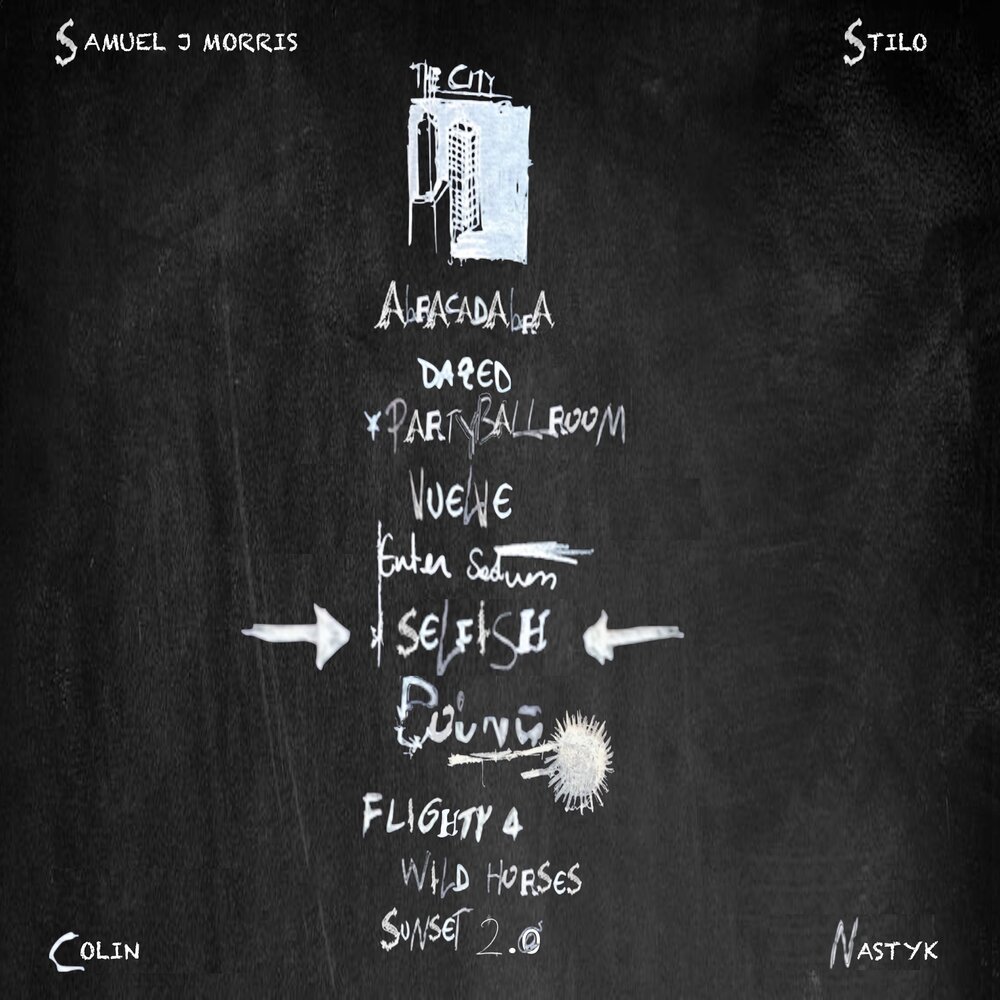 SAMUEL J MORRIS
STILO
THE CITY
AbRACADAbRA
DAZED
*PARTYBALLROOM
VUELVE
Enter
SELFISH
FLIGHTY 4
WILD HORSES
SUNSET 2.0
COLIN
NASTYK